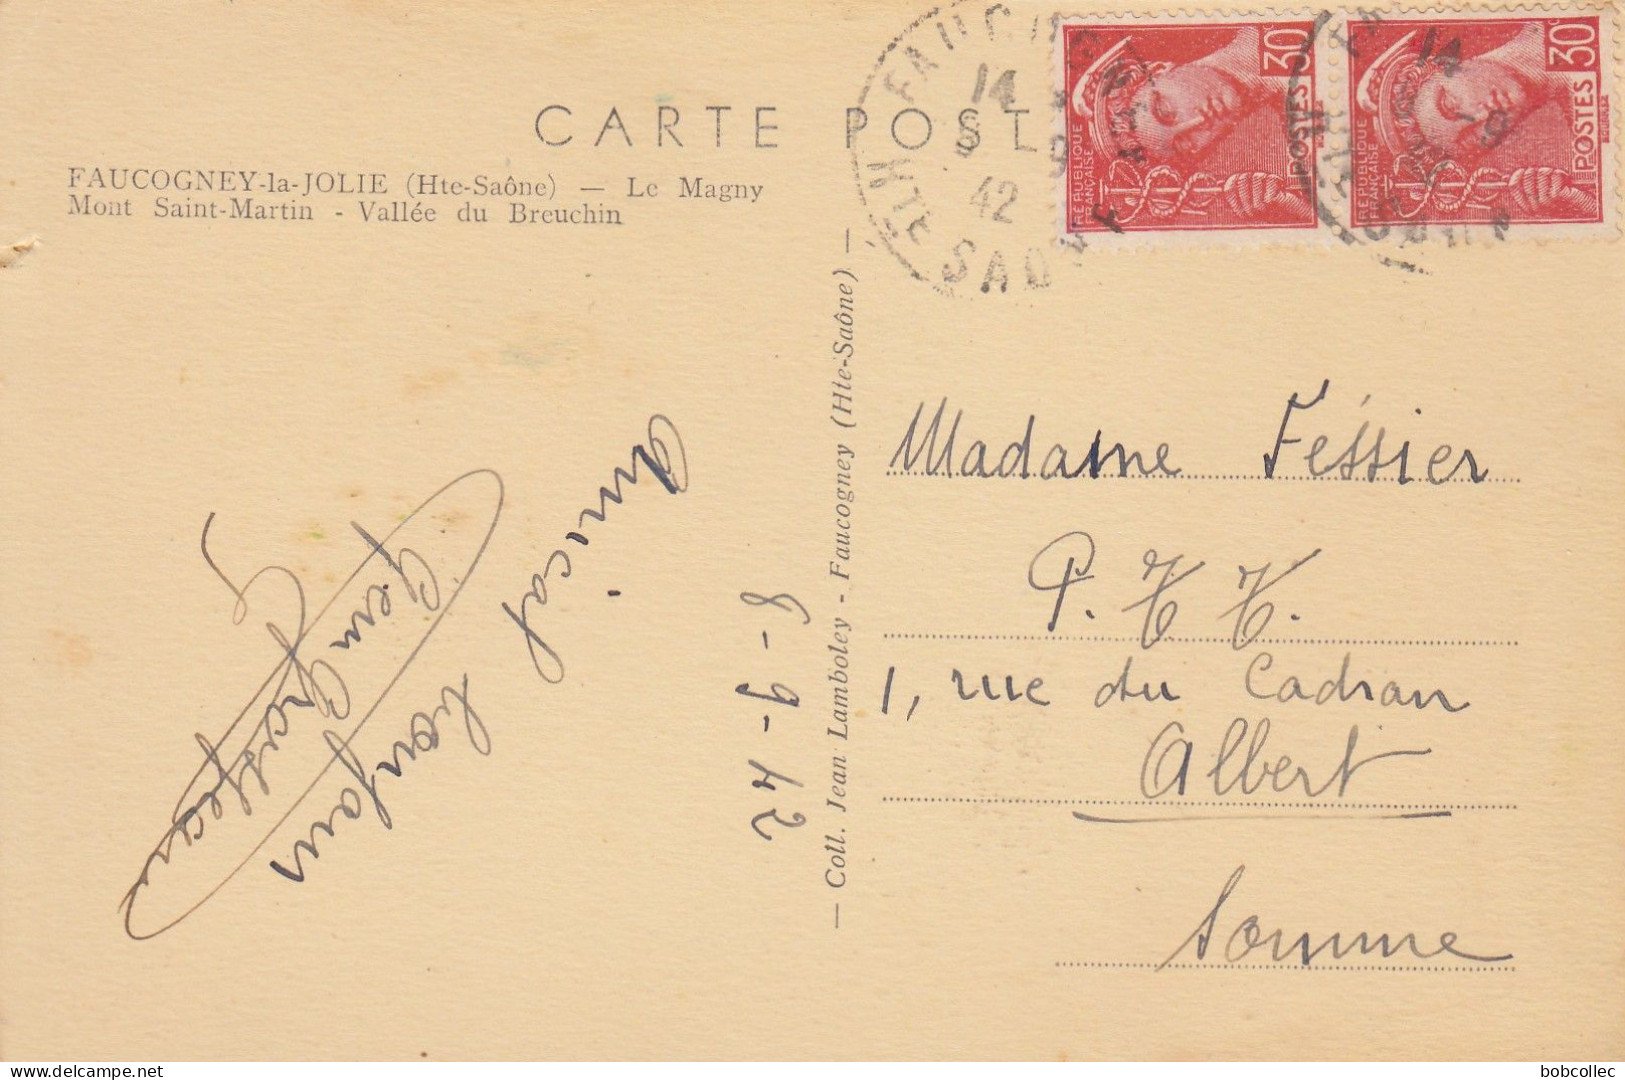 CARTE POST
FAUCOGNEY-la-JOLIE (Hte-Saône) — Le Magny
Mont Saint-Martin - Vallée du Breuchin
FAUCOGNEY
14
9
42
HTE SAONE
30c
RÉPUBLIQUE
FRANÇAISE
POSTES
30c
RÉPUBLIQUE
FRANÇAISE
POSTES
14
-9
— Coll. Jean Lamboley - Faucogney (Hte-Saône) —
Amical bonjour
8-9-42
Madame Féssier
P.T.T.
1, rue du Cadran
Albert
Somme
bobcollec